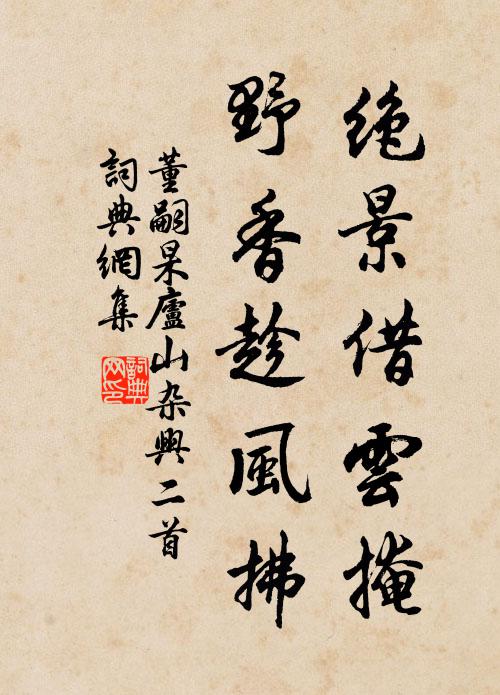 绝景借雲掩
野香趁風拂
董嗣杲廬山杂興二首
詞典網集
詞典网印